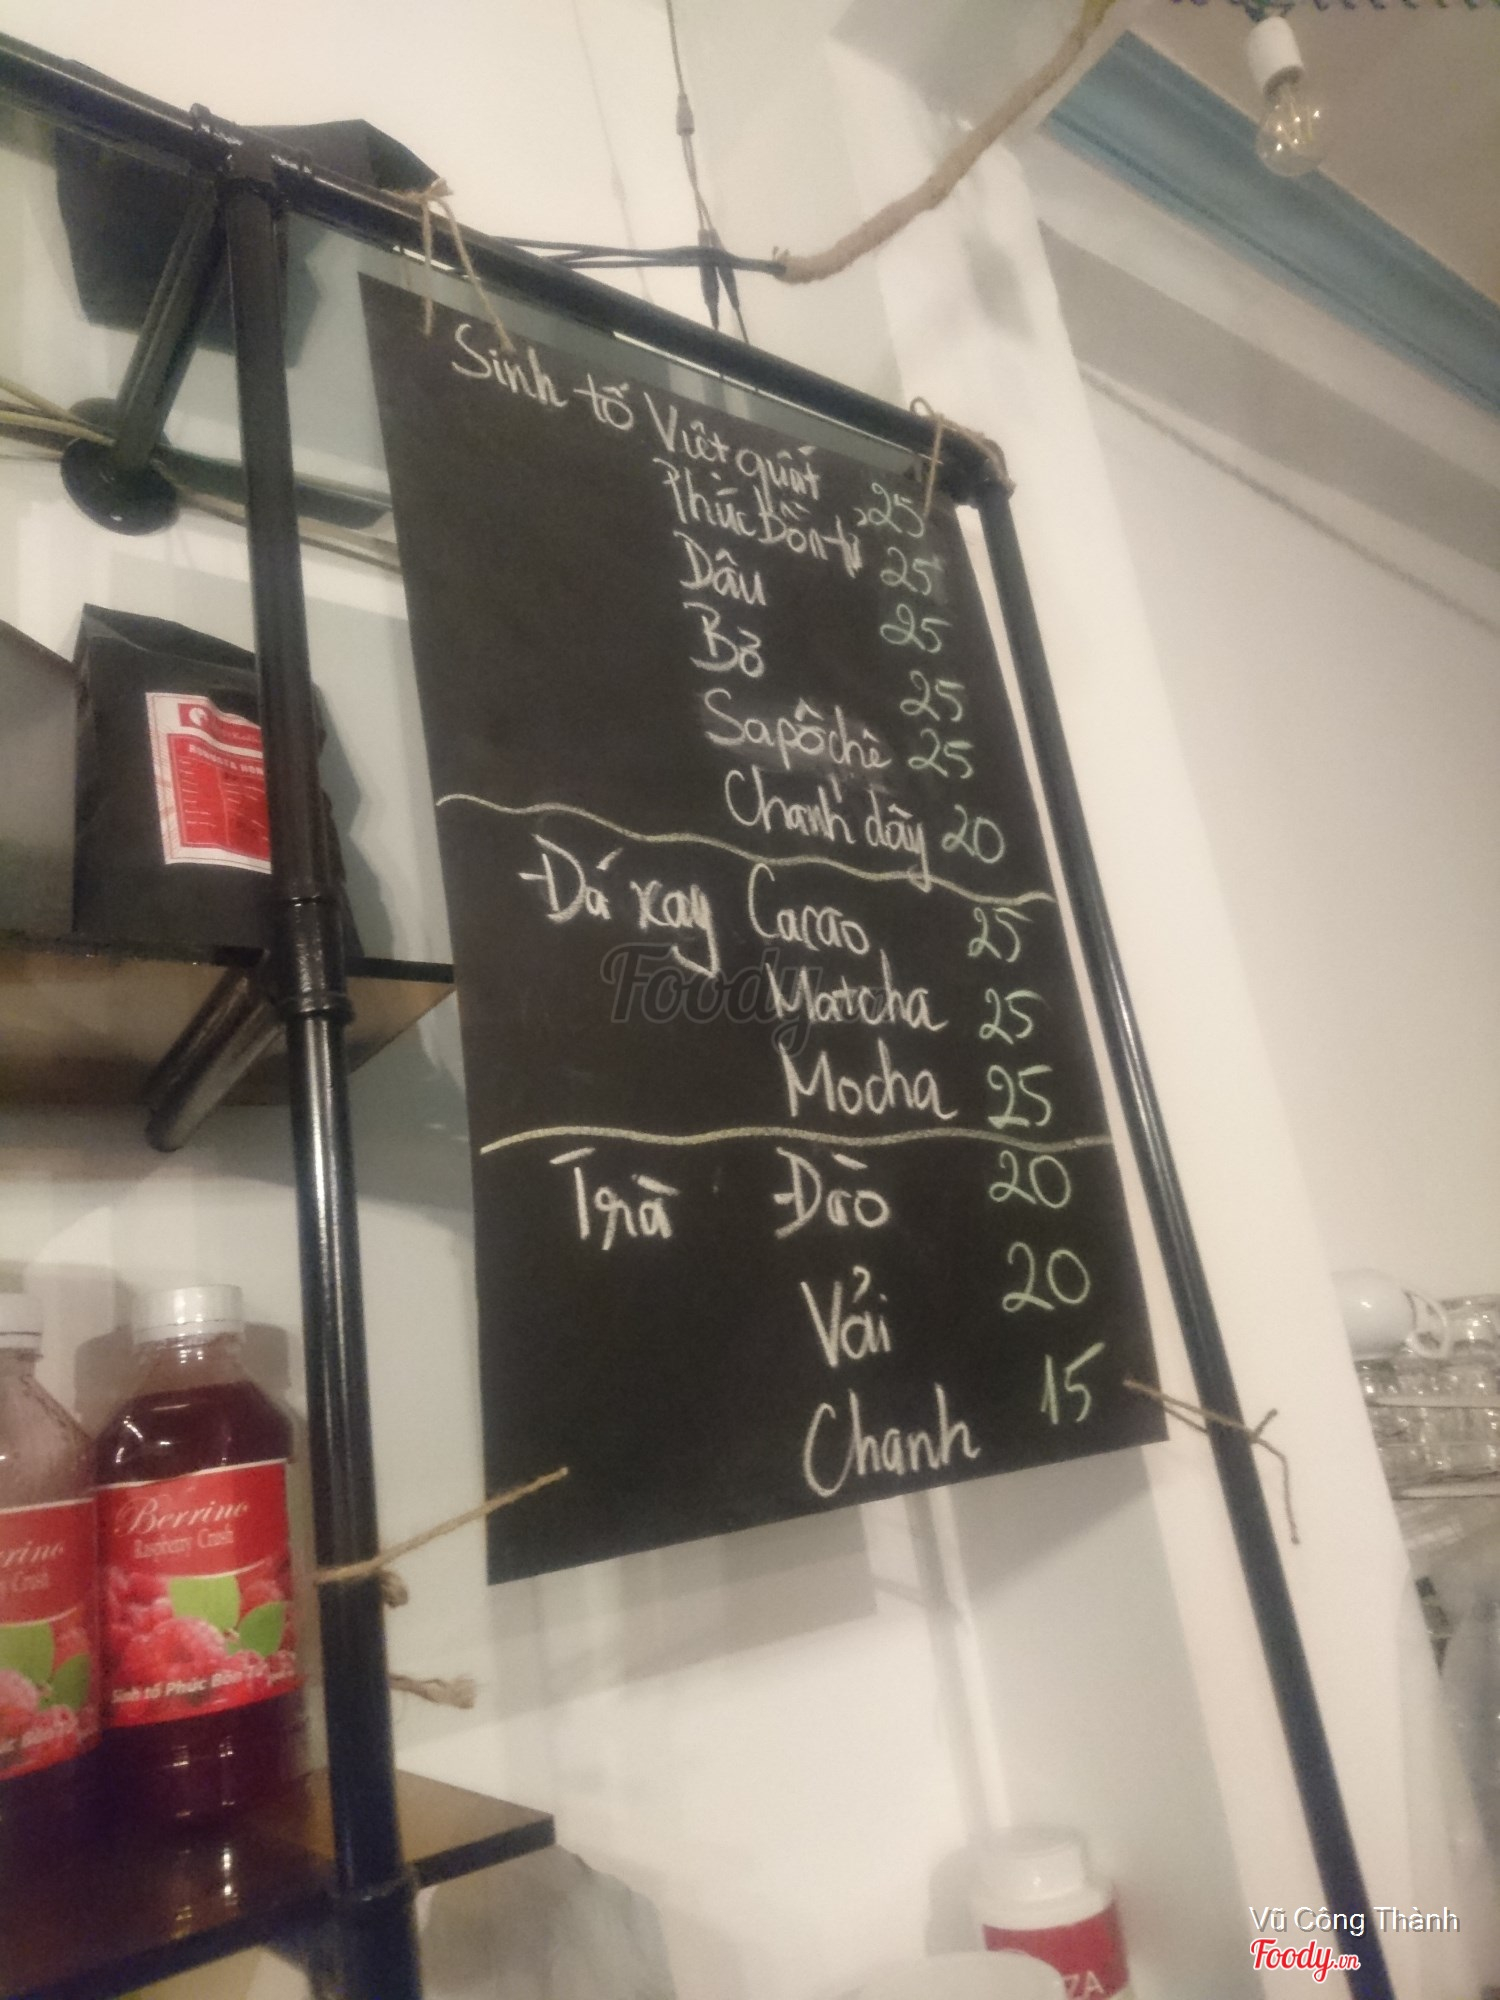 Sinh tố Việt quất 25
Phúc Bồn tử 25
Dâu 25
Bơ 25
Sapôchê 25
Chanh dây 20
Đá xay Cacao 25
Matcha 25
Mocha 25
Trà Đào 20
Vải 20
Chanh 15
Foody
Berrino
Raspberry Crush
Sinh tố Phúc Bồn Tử
rrino
Crush
ZA
Vũ Công Thành
Foody.vn